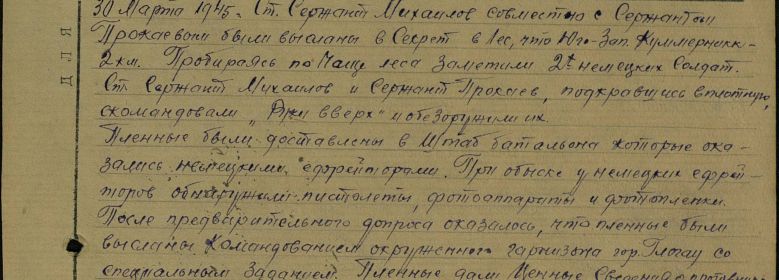 30 Марта 1945. Ст. Сержант Михаилов совместно с Сержантом
Прокаевым были высланы в Секрет в лес, что Юго-Зап. Куммерникк-
2 км. Пробираясь по Чаще леса заметили 2х немецких Солдат.
Ст. Сержант Михаилов и Сержант Прокаев, подкравшись вплотную,
скомандовали „Руки вверх" и обезоружили их.
Пленные были доставлены в Штаб батальона которые ока-
зались немецкими ефрейторами. При обыске у немецких ефрей-
торов обнаружили пистолеты, фотоаппараты и фотопленки.
После предварительного допроса оказалось, что пленные были
высланы Командованием окруженного гарнизона гор. Глогау со
специальным Заданием. Пленные дали Ценные Сведения о противни-
ДЛЯ